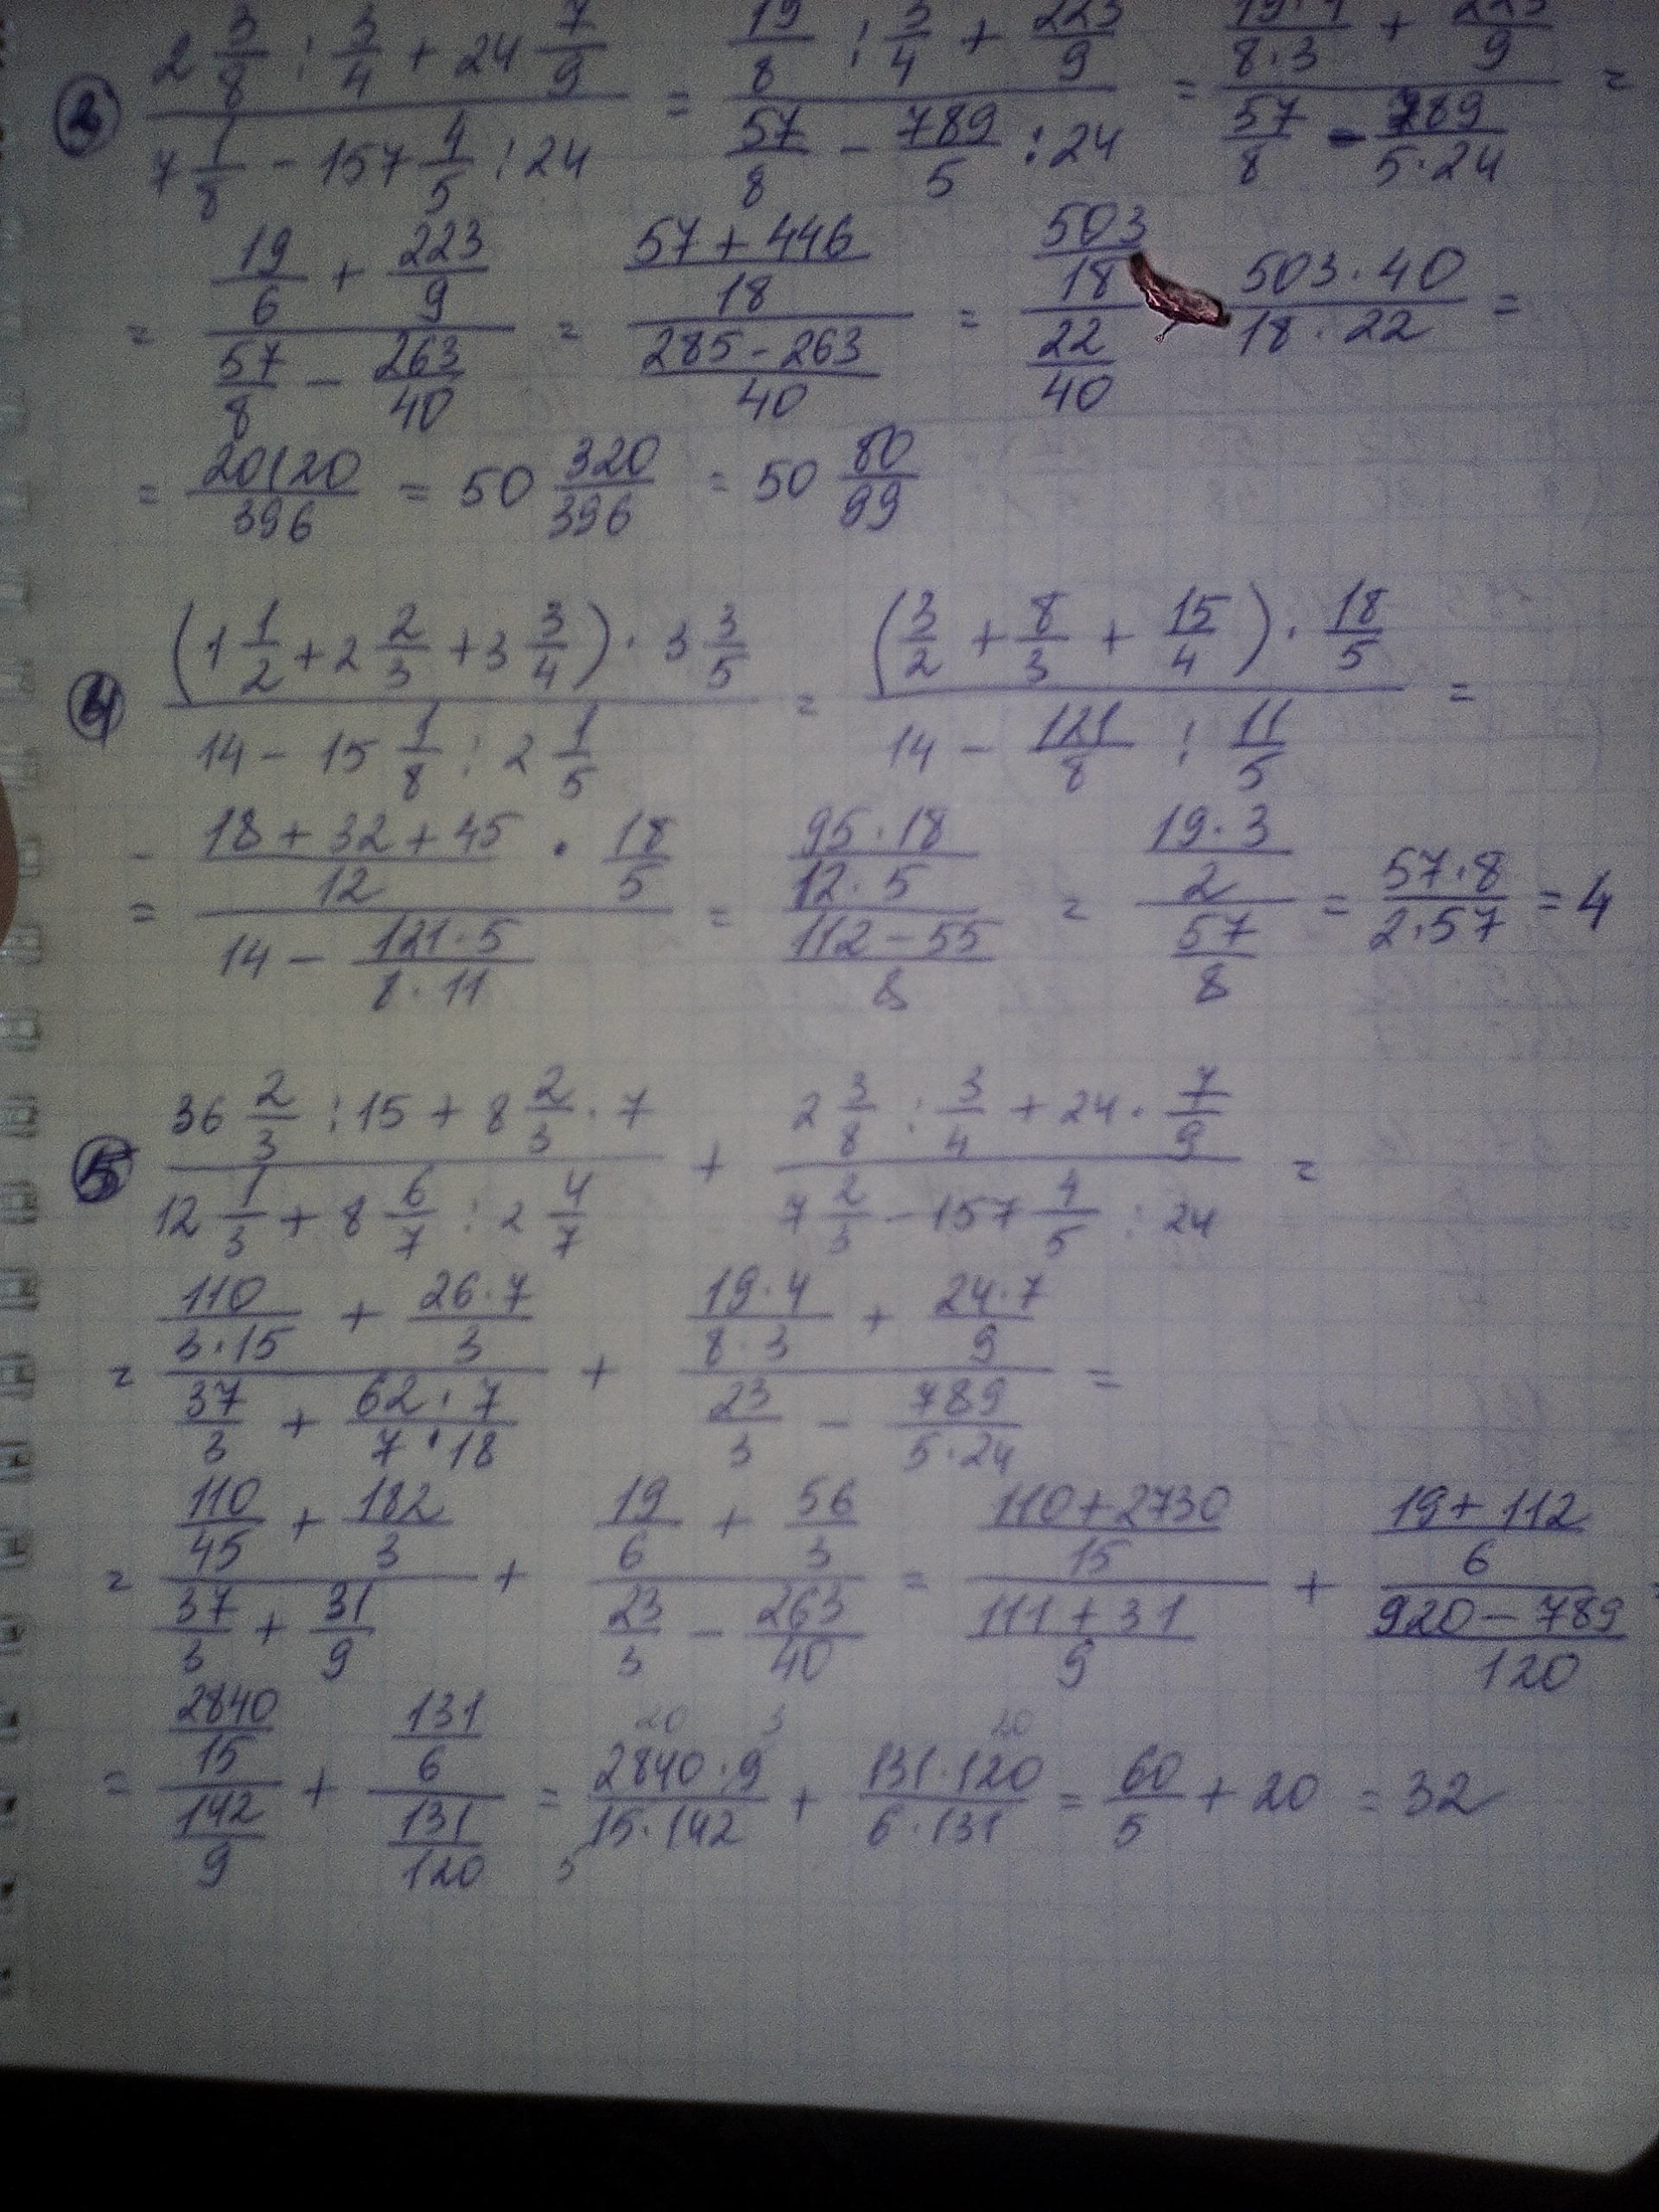 2 3/8 : 3/4 + 24 7/9 / 7 1/8 - 157 4/5 : 24 = 19/8 : 3/4 + 223/9 / 57/8 - 789/5 : 24 = 19·4/8·3 + 223/9 / 57/8 - 789/5·24 =
= 19/6 + 223/9 / 57/8 - 263/40 = 57+446/18 / 285-263/40 = 503/18 / 22/40 503·40/18·22 =
= 20120/396 = 50 320/396 = 50 80/99
4 (1 1/2 + 2 2/3 + 3 3/4) · 3 3/5 / 14 - 15 1/8 : 2 1/5 = (3/2 + 8/3 + 15/4) · 18/5 / 14 - 121/8 : 11/5 =
= 18+32+45/12 · 18/5 / 14 - 121·5/8·11 = 95·18/12·5 / 112-55/8 = 19·3/2 / 57/8 = 57·8/2·57 = 4
5 36 2/3 : 15 + 8 2/3 · 7 / 12 1/3 + 8 6/7 : 2 4/7 + 2 3/8 : 3/4 + 24 · 7/9 / 7 2/3 - 157 4/5 : 24 =
= 110/3·15 + 26·7/3 / 37/3 + 62·7/7·18 + 19·4/8·3 + 24·7/9 / 23/3 - 789/5·24 =
= 110/45 + 182/3 / 37/3 + 31/9 + 19/6 + 56/3 / 23/3 - 263/40 = 110+2730/15 / 111+31/9 + 19+112/6 / 920-789/120 =
= 2840/15 / 142/9 + 131/6 / 131/120 = 2840·9/15·142 + 131·120/6·131 = 60/5 + 20 = 32